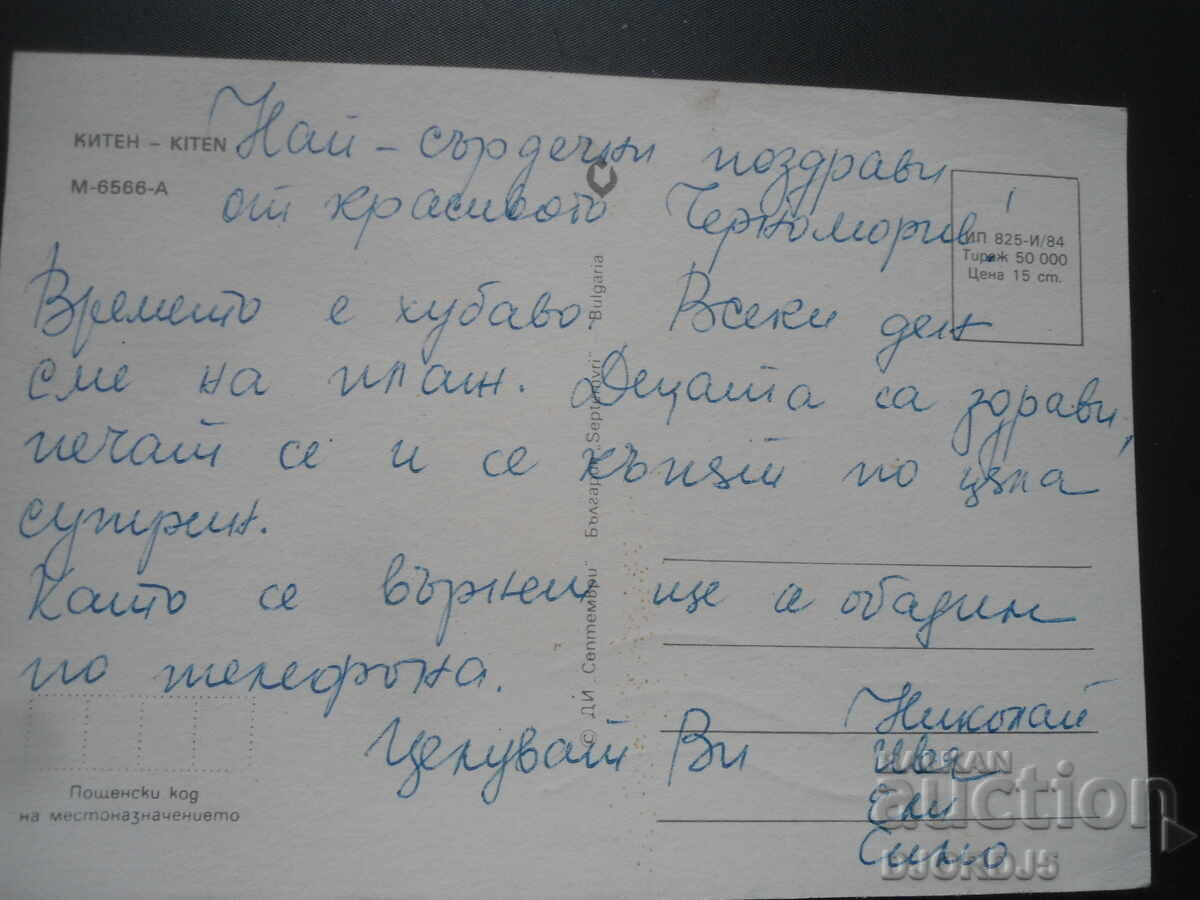 КИТЕН – KITEN
М-6566-А
Най-сърдечни поздрави
от красивото Черноморие.
ИП 825-И/84
Тираж 50 000
Цена 15 ст.
Времето е хубаво. Всеки ден
сме на плаж. Децата са здрави,
печат се и се къпят по цяла
сутрин.
Като се върнем ще се обадим
по телефона.
Целуват Ви
Николай
Ели
© ДИ „Септември" България „Septemvri" – Bulgaria
Пощенски код
на местоназначението
BALKAN
auction
DJORDJ5